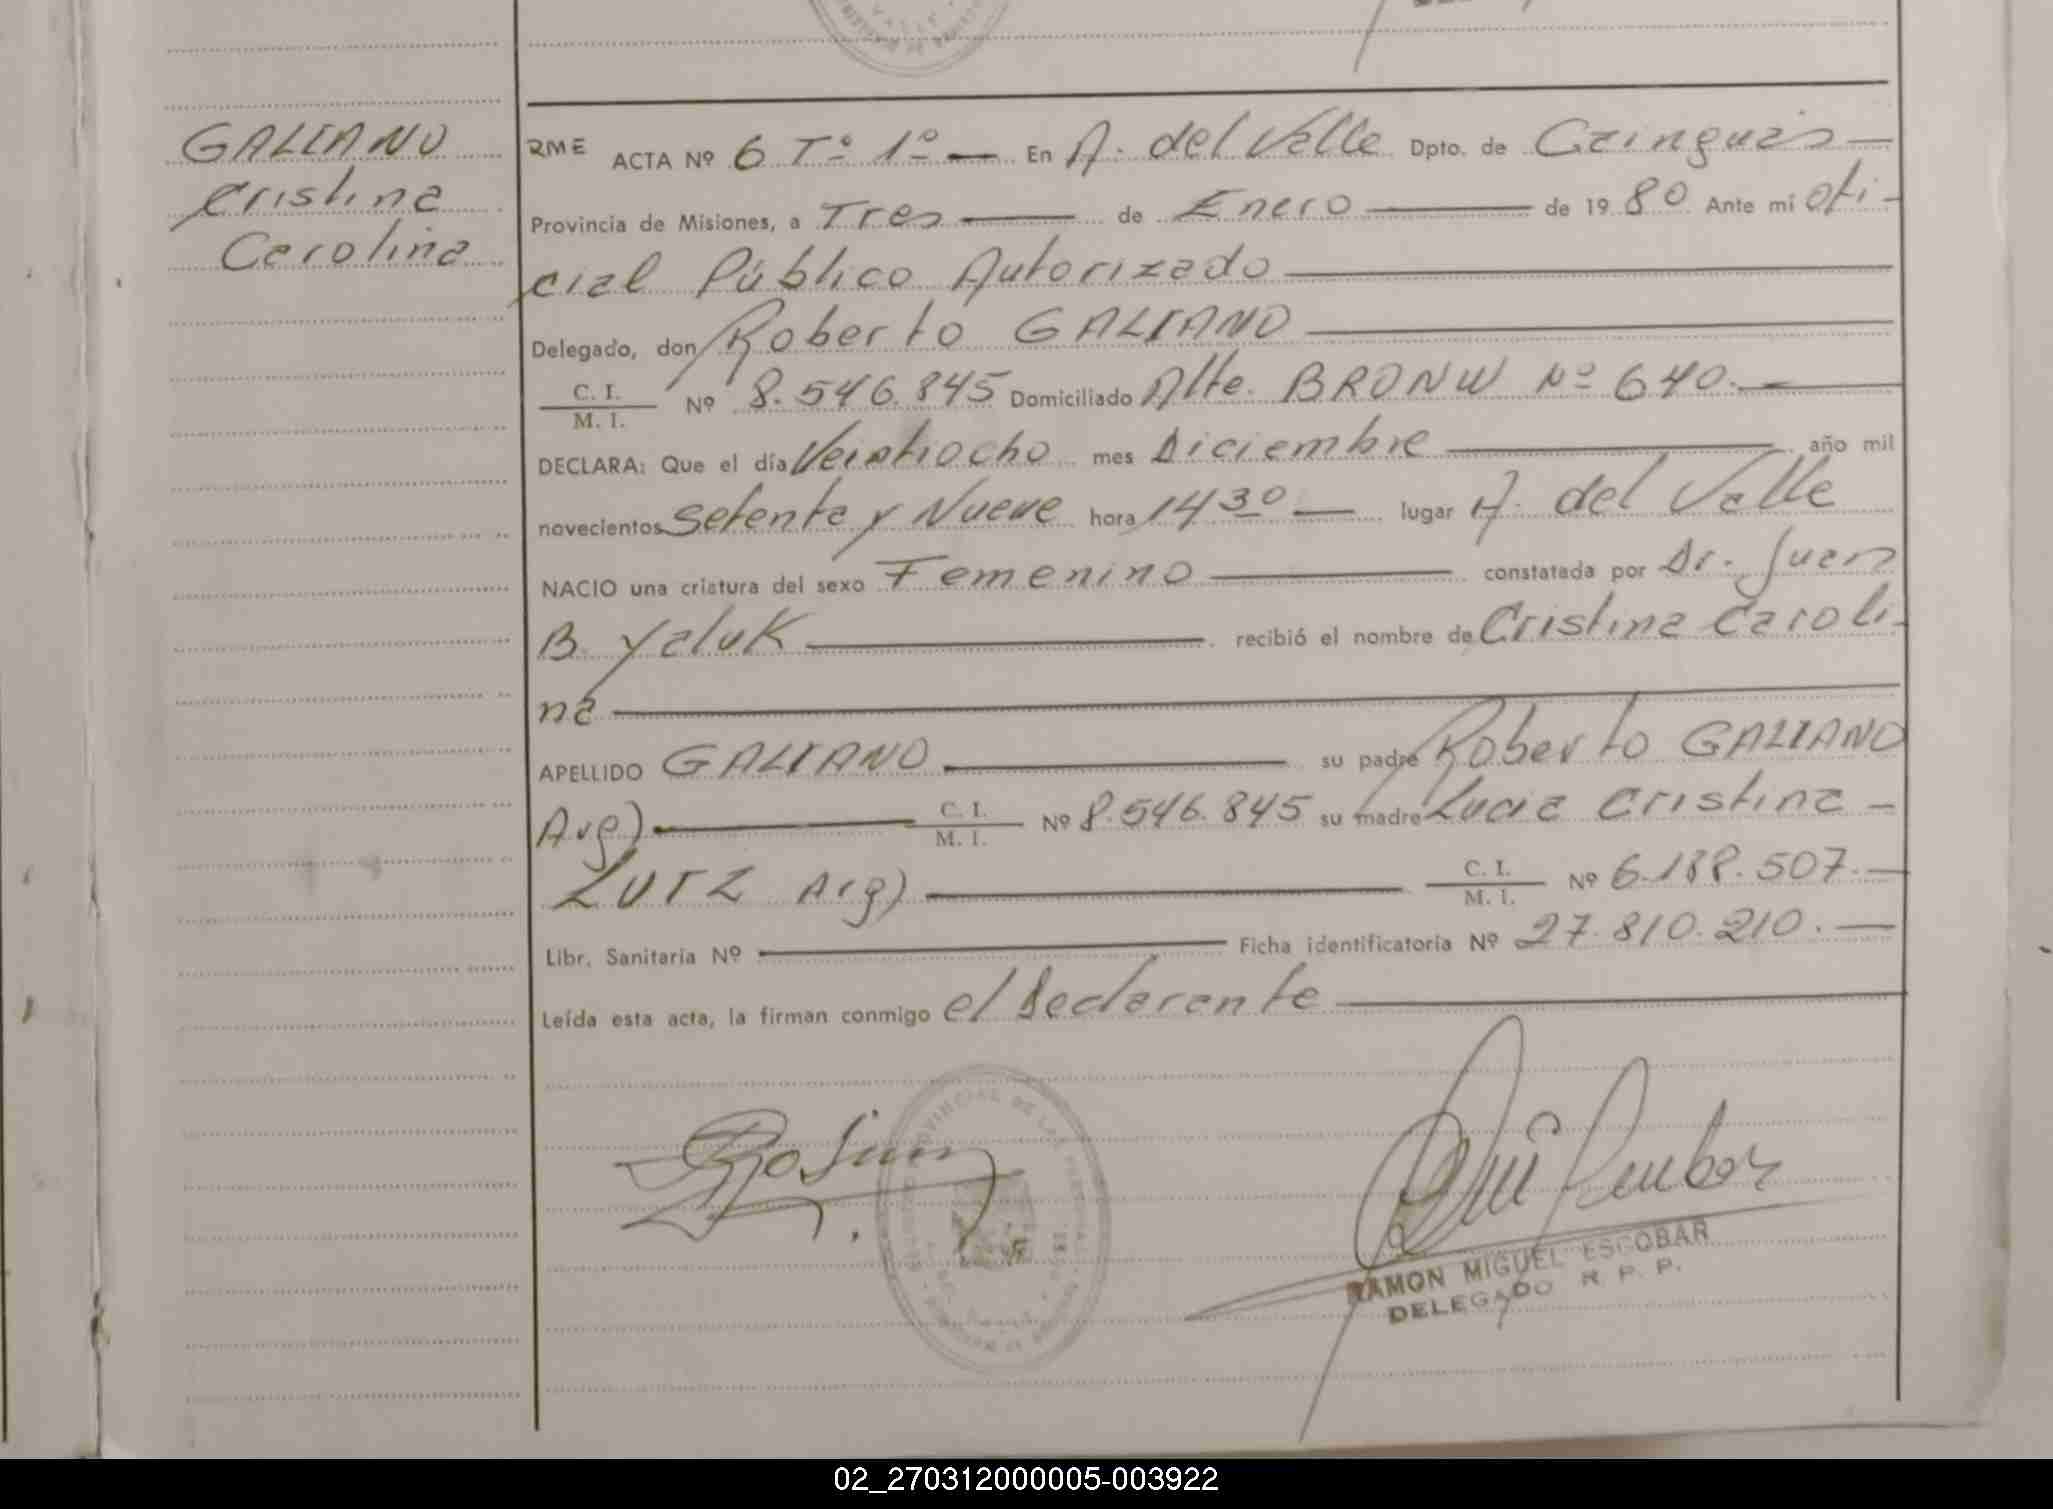 GALIANO
Cristina
Carolina
RME ACTA Nº 6 Tº 1º En A. del Valle Dpto. de Cainguás
Provincia de Misiones, a Tres de Enero de 1980 Ante mí ofi-
cial Público Autorizado
Delegado, don Roberto GALIANO
C. I.
M. I. Nº 8.546.845 Domiciliado Alte. BRONW Nº 640.
DECLARA: Que el día Veintiocho mes Diciembre año mil
novecientos Setenta y Nueve hora 14 30 lugar A. del Valle
NACIO una criatura del sexo Femenino constatada por Dr. Juan
B. Yaluk recibió el nombre de Cristina Caroli-
na
APELLIDO GALIANO su padre Roberto GALIANO
Arg) C. I.
M. I. Nº 8.546.845 su madre Lucia Cristina -
LUTZ Arg) C. I.
M. I. Nº 6.188.507.
Libr. Sanitaria Nº Ficha identificatoria Nº 27.810.210.
Leída esta acta, la firman conmigo el Declarante
RAMON MIGUEL ESCOBAR
DELEGADO R. P. P.
02_270312000005-003922